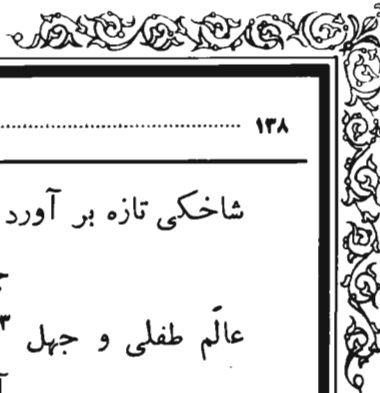 ۱۳۸
شاخکی تازه بر آورد
عالَم طفلی و جهل ۳